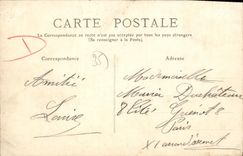 CARTE POSTALE
La Correspondance au recto n'est pas acceptée par tous les pays étrangers
(Se renseigner à la Poste).
Correspondance
Adresse
D
35
Amitié
Louise
Mademoiselle
Maria
8 Cité Guénot 8
Paris